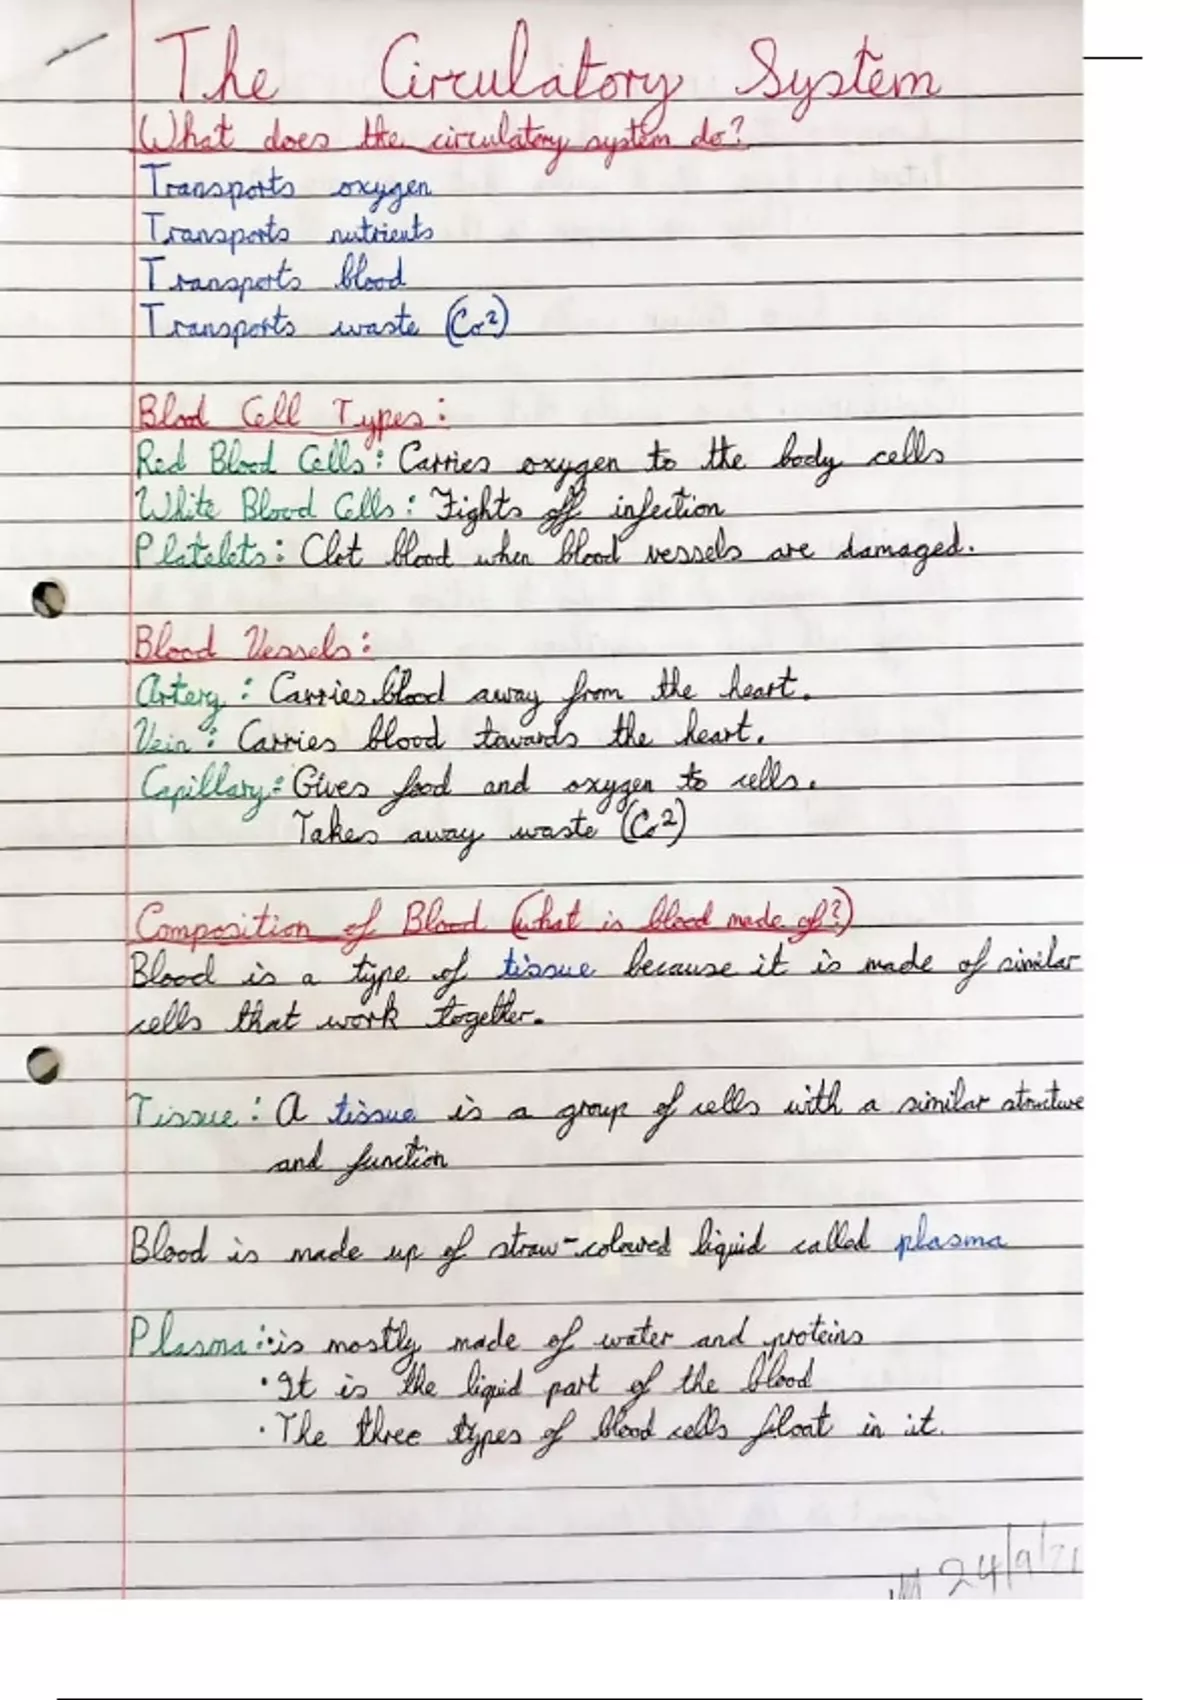 The Circulatory System
What does the circulatory system do?
Transports oxygen
Transports nutrients
Transports blood
Transports waste (Co²)
Blood Cell Types:
Red Blood Cells: Carries oxygen to the body cells
White Blood Cells: Fights off infection
Platelets: Clot blood when blood vessels are damaged.
Blood Vessels:
Artery: Carries blood away from the heart.
Vein: Carries blood towards the heart.
Capillary: Gives food and oxygen to cells.
Takes away waste (Co²)
Composition of Blood (what is blood made of?)
Blood is a type of tissue because it is made of similar
cells that work together.
Tissue: A tissue is a group of cells with a similar structure
and function
Blood is made up of straw-coloured liquid called plasma
Plasma: •is mostly made of water and proteins
•It is the liquid part of the blood
•The three types of blood cells float in it.
24/9/21